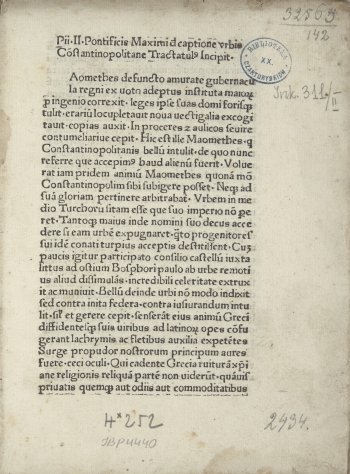 32503
142
Pii·II·Pontificis Maximi d captione vrbis
Cōstantinopolitane Tractatulꝰ Incipit·
BIBLIOTEKA
XX.
CZARTORYSKICH
Ink. 311/I
II
Aomethes defuncto amurate gubernacu
la regni ex uoto adeptus instituta maioꝝ
ꝓ ingenio correxit· leges ipse suas domi forisqꝫ
tulit· erariū locupletauit noua uectigalia excogi
tauit· copias auxit· In proceres ⁊ aulicos seuire
contumeliariue cepit· Hic est ille Maomethes· q
Constantinopolitanis bellū intulit· de quo nunc
referre que accepimꝰ haud alienū fuerit· Volue
rat iam pridem animū Maomethes quonā mō
Constantinopolim sibi subigere posset· Neqꝫ ad
suā gloriam pertinere arbitrabat· Vrbem in me
dio Turchoꝝ sitam esse que suo imperio nō pe
ret· Tantoqꝫ maius inde nomini suo decus acce
dere si eam urbē expugnaret· q̄to progenitores
sui idē conati turpius acceptis destitissent· Cuꝫ
paucis igitur participato consilio castellū iuxta
littus ad ostium Bosphori paulo ab urbe remoti
us aliud dissimulās· incredibili celeritate extrux
it ac muniuit· Bellū deinde urbi nō modo indixit
sed contra inita federa· contra iusiurandum intu
lit· sil̄r et gerere cepit· senserāt eius animū Greci
diffidentesqꝫ suis uiribus ad latinoꝝ opes cōfu
gerant lachrymis ac fletibus auxilia expetētes
Surge propudor nostrorum principum aures
fuere· ceci oculi· Qui cadente Grecia ruiturā xp̄i
ane religionis reliquā partē non uiderūt· quāuis
priuatis quemqꝫ aut odiis aut commoditatibus
4° 252
JBP4440
2434.